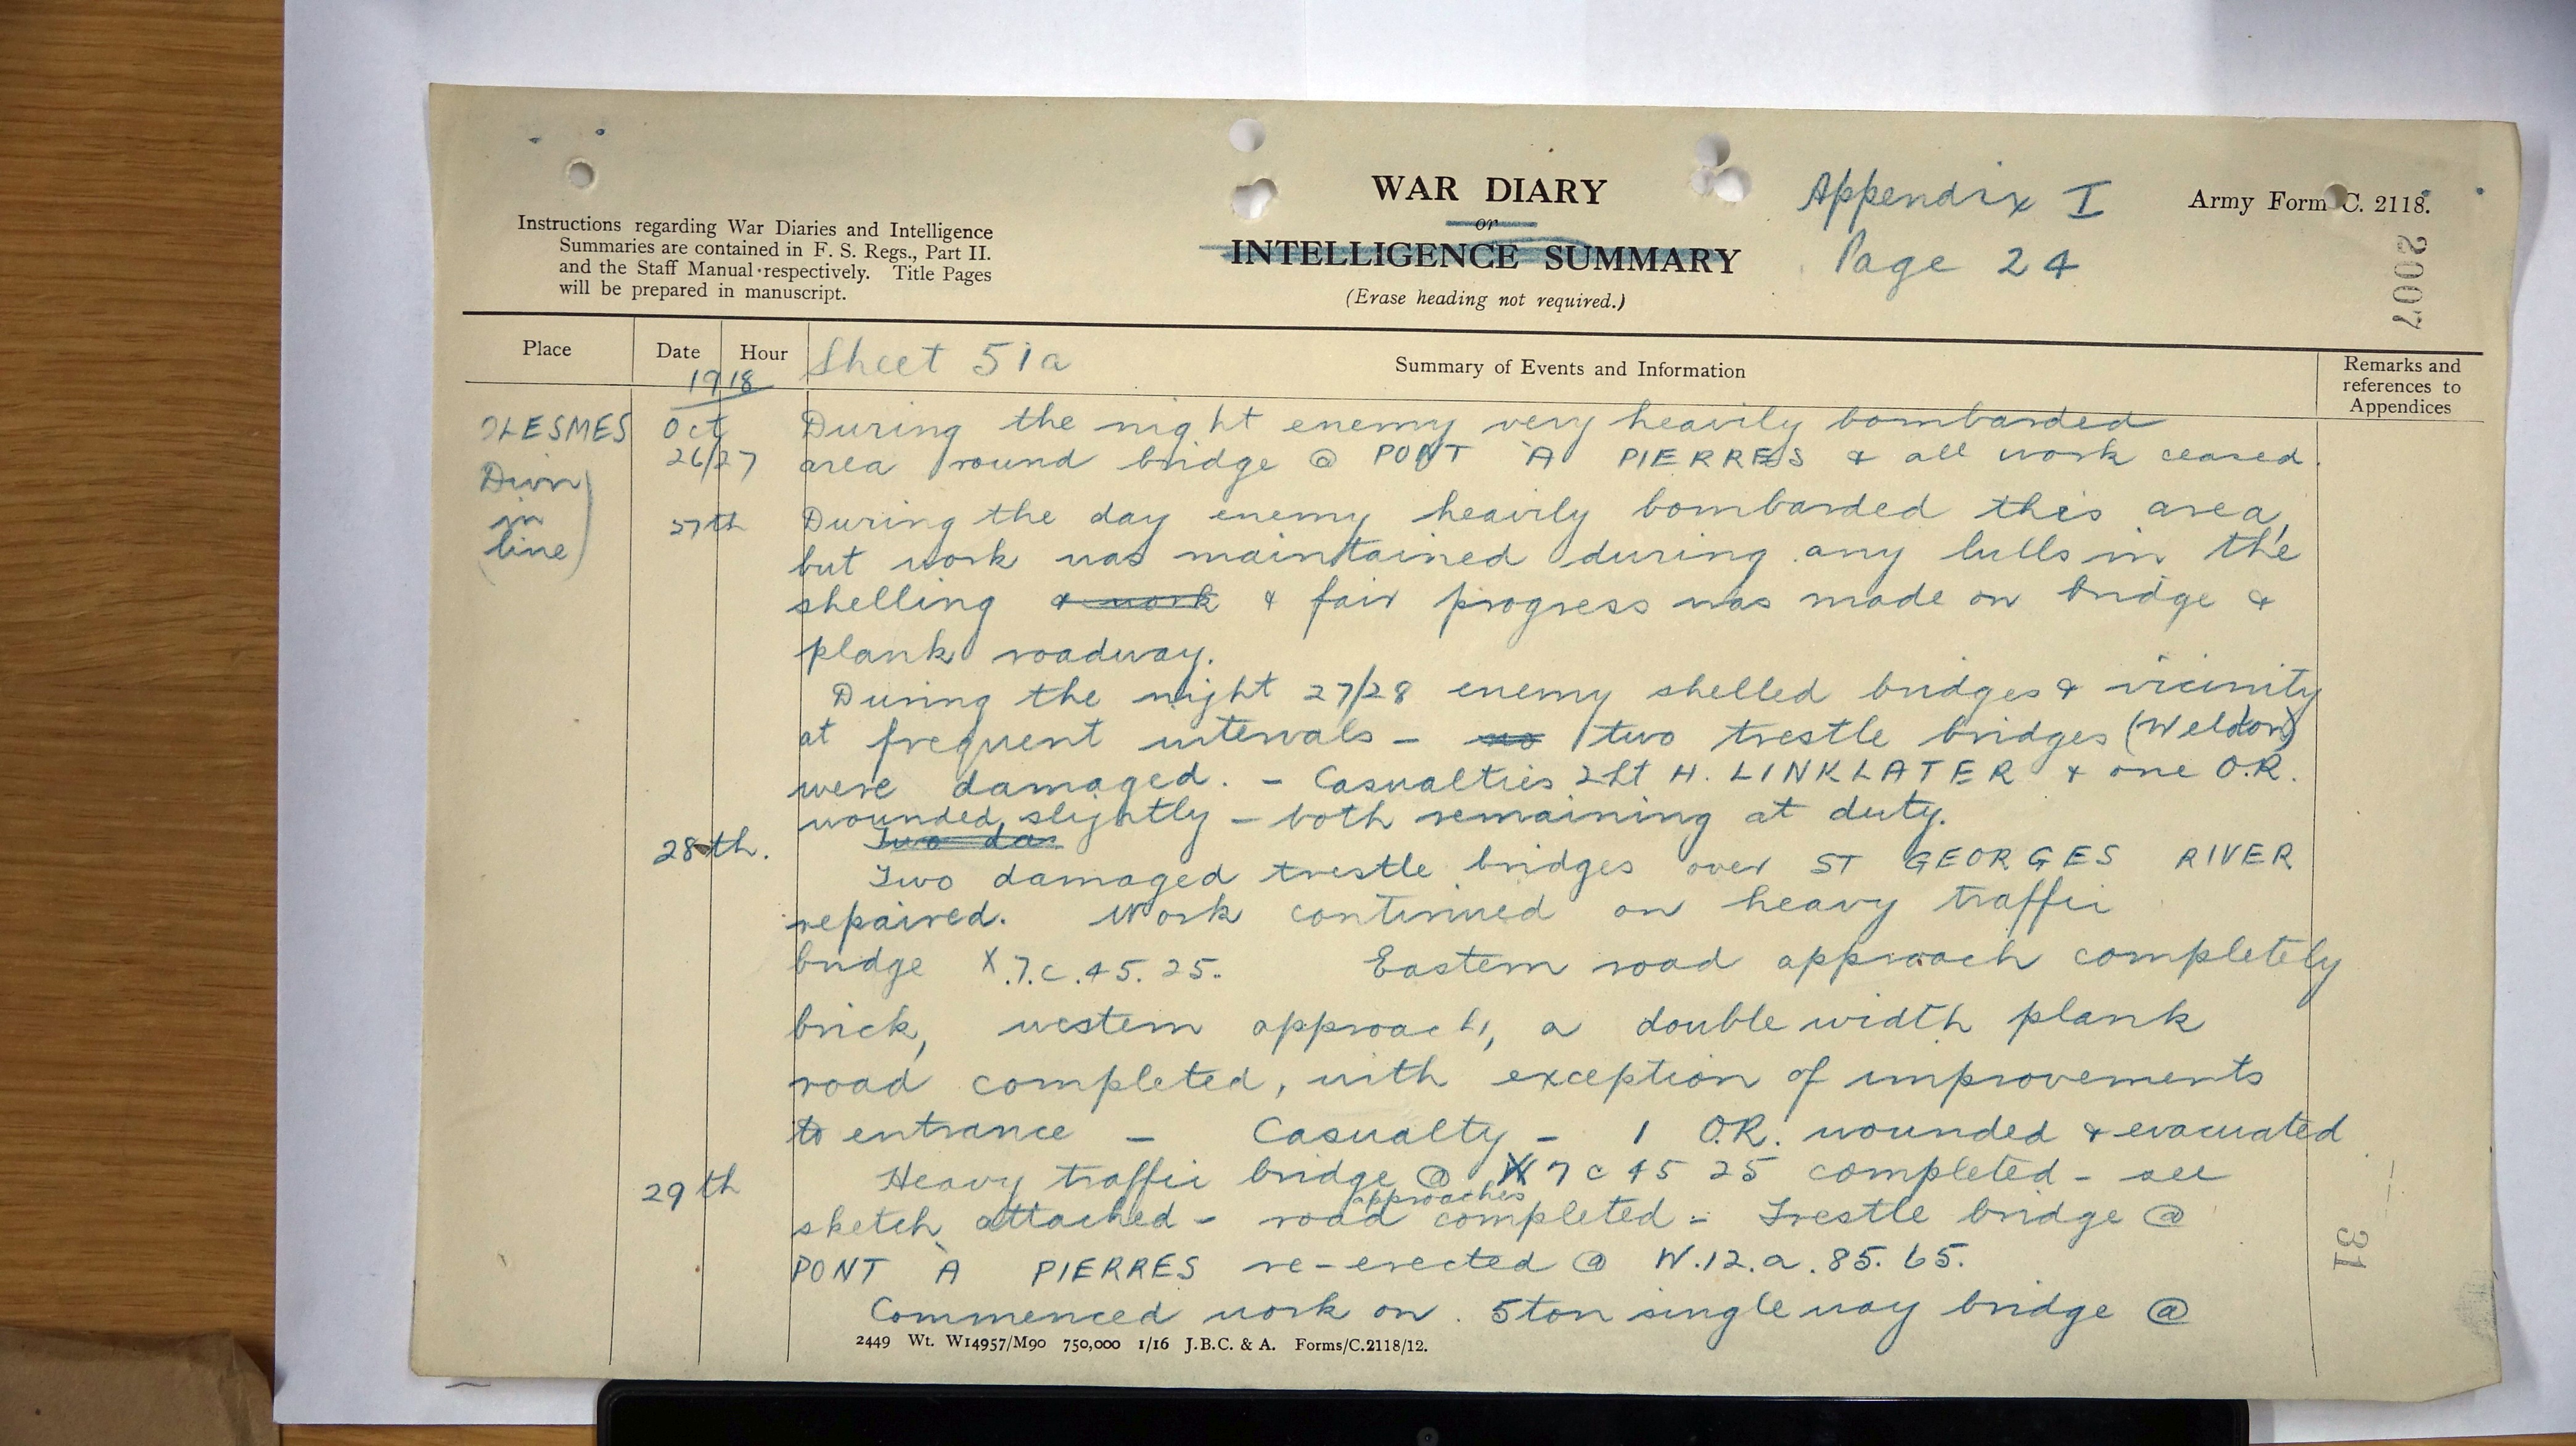 Instructions regarding War Diaries and Intelligence
Summaries are contained in F. S. Regs., Part II.
and the Staff Manual respectively. Title Pages
will be prepared in manuscript.
WAR DIARY
or
INTELLIGENCE SUMMARY
(Erase heading not required.)
Appendix I
Page 24
Army Form C. 2118.
2007
Place
Date
Hour
1918
Sheet 51a
Summary of Events and Information
Remarks and
references to
Appendices
OLESMES
(Divn
in
line)
Oct
26/27
During the night enemy very heavily bombarded
area round bridge @ PONT À PIERRES & all work ceased.
27th
During the day enemy heavily bombarded this area,
but work was maintained during any lulls in the
shelling & work & fair progress was made on bridge &
plank roadway.
During the night 27/28 enemy shelled bridges & vicinity
at frequent intervals - no two trestle bridges (Weldon)
were damaged. - Casualties 2Lt H. LINKLATER & one O.R.
wounded slightly - both remaining at duty.
28th.
Two da
Two damaged trestle bridges over ST GEORGES RIVER
repaired. Work continued on heavy traffic
bridge X.7.c.45.25. Eastern road approach completely
brick, western approach, a double width plank
road completed, with exception of improvements
to entrance - Casualty - 1 O.R. wounded & evacuated
29th
Heavy traffic bridge @ X7c 45 25 completed - see
sketch attached - road approaches completed - Trestle bridge @
PONT À PIERRES re-erected @ W.12.a.85.65.
Commenced work on 5ton single way bridge @
31
2449 Wt. W14957/M90 750,000 1/16 J.B.C. & A. Forms/C.2118/12.